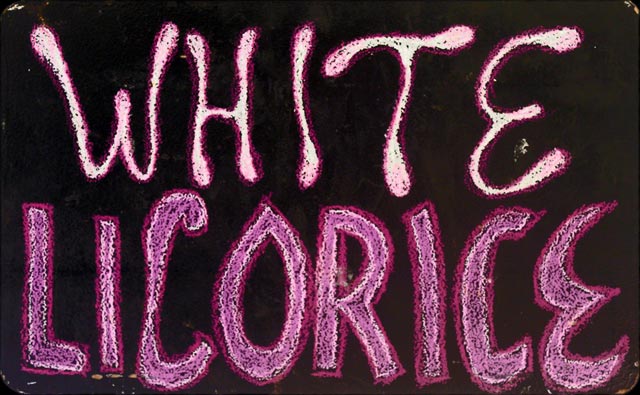 WHITE
LICORICE